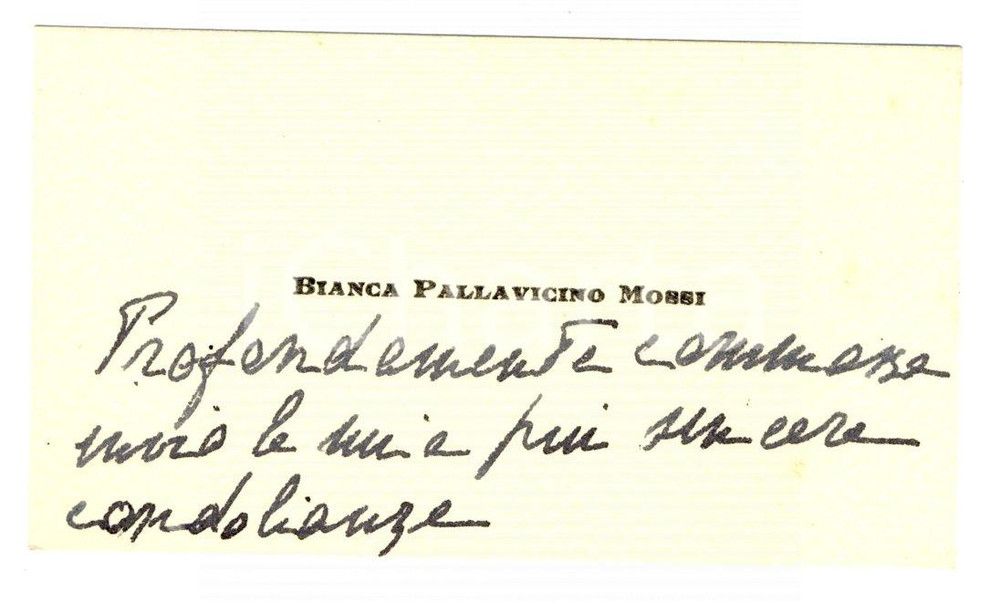 BIANCA PALLAVICINO MOSSI
Profondamente commossa
invio le mie più sincere
condolianze